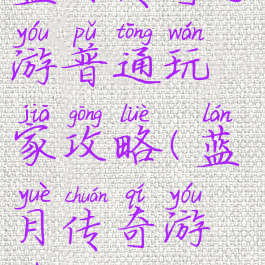 yóu pǔ tōng wán
游普通玩
jiā gōng lüè lán
家攻略(蓝
yuè chuán qí yóu
月传奇游